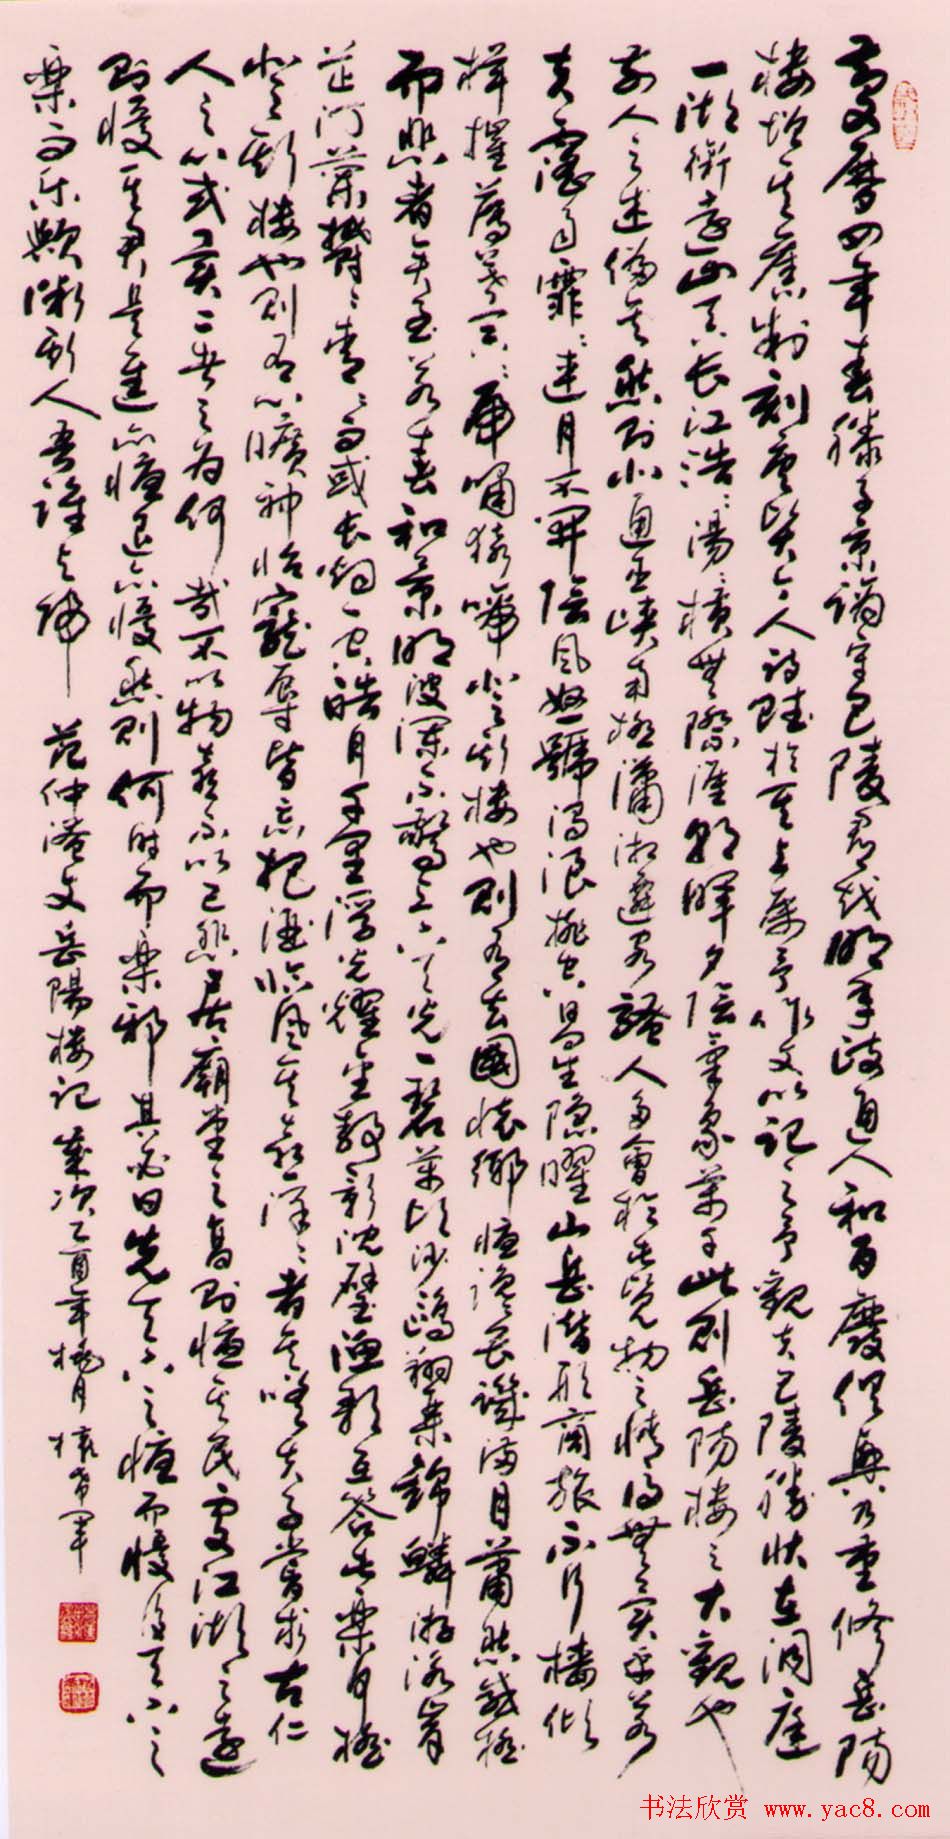 慶曆四年春滕子京謫守巴陵郡越明年政通人和百廢俱興乃重修岳陽
樓增其舊制刻唐賢今人詩賦於其上屬予作文以記之予觀夫巴陵勝狀在洞庭
一湖銜遠山吞長江浩浩湯湯橫無際涯朝暉夕陰氣象萬千此則岳陽樓之大觀也
前人之述備矣然則北通巫峽南極瀟湘遷客騷人多會於此覽物之情得無異乎若
夫霪雨霏霏連月不開陰風怒號濁浪排空日星隱曜山岳潛形商旅不行檣傾
楫摧薄暮冥冥虎嘯猿啼登斯樓也則有去國懷鄉憂讒畏譏滿目蕭然感極
而悲者矣至若春和景明波瀾不驚上下天光一碧萬頃沙鷗翔集錦鱗游泳岸
芷汀蘭鬱鬱青青而或長煙一空皓月千里浮光耀金靜影沈璧漁歌互答此樂何極
登斯樓也則有心曠神怡寵辱皆忘把酒臨風其喜洋洋者矣嗟夫予嘗求古仁
人之心或異二者之為何哉不以物喜不以己悲居廟堂之高則憂其民處江湖之遠
則憂其君是進亦憂退亦憂然則何時而樂耶其必曰先天下之憂而憂後天下之
樂而樂歟微斯人吾誰與歸 范仲淹文岳陽樓記 歲次乙酉年桃月
书法欣赏 www.yac8.com